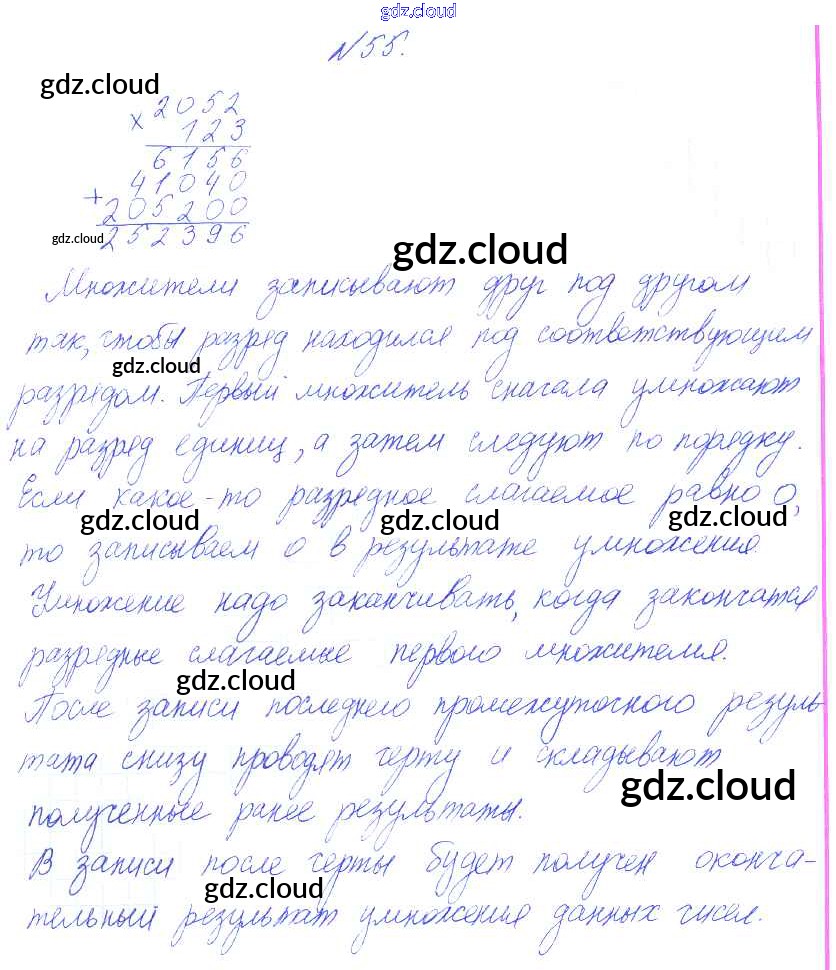 gdz.cloud
№55.
gdz.cloud
× 2052
123
6156
+ 41040
205200
gdz.cloud 252396
gdz.cloud
Множители записывают друг под другом
так, чтобы разряд находился под соответствующим
gdz.cloud
разрядом. Первый множитель сначала умножают
на разряд единиц, а затем следуют по порядку.
Если какое-то разрядное слагаемое равно 0,
gdz.cloud gdz.cloud gdz.cloud
то записываем 0 в результате умножения.
Умножение надо заканчивать, когда закончатся
разрядные слагаемые первого множителя.
gdz.cloud
После записи последнего промежуточного резуль-
тата снизу проводят черту и складывают
gdz.cloud
полученные ранее результаты.
В записи после черты будет получен оконча-
gdz.cloud
тельный результат умножения данных чисел.